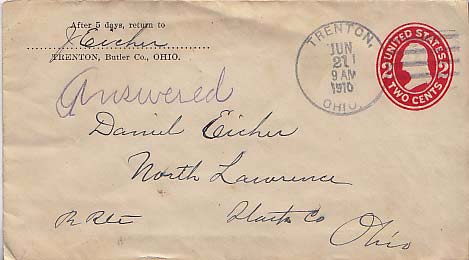 After 5 days, return to
J Eicher
TRENTON, Butler Co., OHIO.
TRENTON,
JUN
21
9 AM
1910
OHIO.
UNITED STATES
2 2
TWO CENTS
Answered
Daniel Eicher
North Lawrence
Stark Co
Ohio